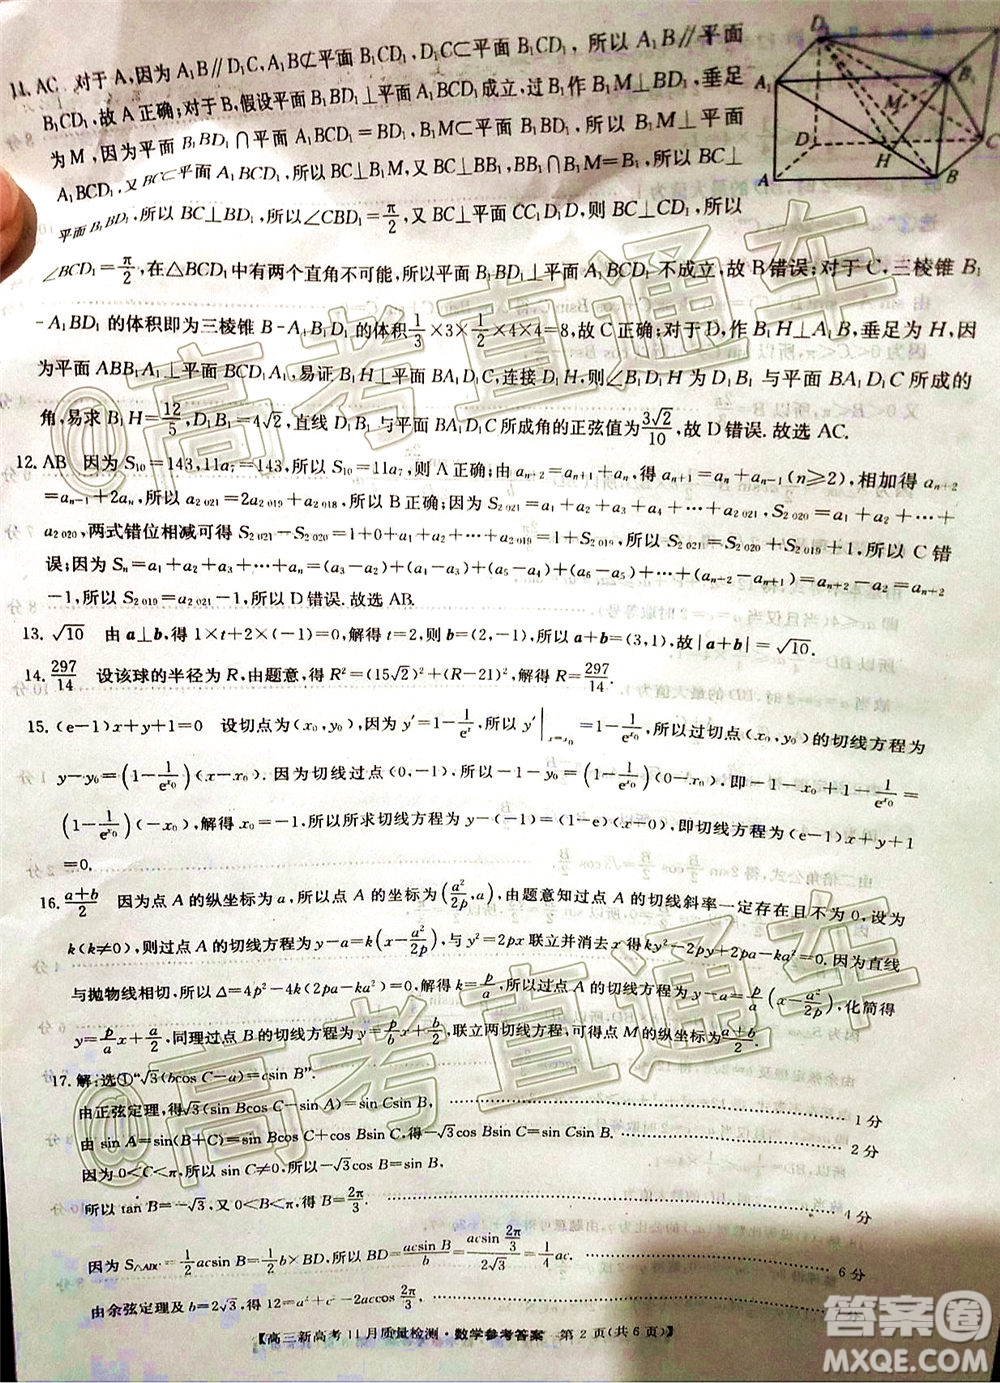 11. AC 对于 A,因为 A₁B∥D₁C,A₁B⊄平面 B₁CD₁,D₁C⊂平面 B₁CD₁,所以 A₁B∥平面
B₁CD₁,故 A 正确;对于 B,假设平面 B₁BD₁⊥平面 A₁BCD₁ 成立,过 B₁ 作 B₁M⊥BD₁,垂足
为 M,因为平面 B₁BD₁∩平面 A₁BCD₁=BD₁,B₁M⊂平面 B₁BD₁,所以 B₁M⊥平面
A₁BCD₁,又 BC⊂平面 A₁BCD₁,所以 BC⊥B₁M,又 BC⊥BB₁,B₁M∩BB₁=B₁,所以 BC⊥
平面 B₁BD₁,所以 BC⊥BD₁,所以∠CBD₁=π/2,又 BC⊥平面 CC₁D₁D,则 BC⊥CD₁,所以
∠BCD₁=π/2,在△BCD₁中有两个直角不可能,所以平面 B₁BD₁⊥平面 A₁BCD₁ 不成立,故 B错误;对于 C,三棱锥 B₁
-A₁BD₁ 的体积即为三棱锥 B-A₁B₁D₁ 的体积1/3×3×1/2×4×4=8,故 C正确;对于 D,作 B₁H⊥A₁B,垂足为 H,因
为平面 ABB₁A₁⊥平面 BA₁D₁C,易证 B₁H⊥平面 BA₁D₁C,连接 D₁H,所以∠B₁D₁H 为 D₁B₁ 与平面 BA₁D₁C 所成的
角,易求 B₁H=12/5,D₁B₁=4√2,直线 D₁B₁ 与平面 BA₁D₁C 所成角的正弦值为3√2/10,故 D错误.故选 AC.
12. AB 因为 S₁₀=143,11a₇=143,所以 S₁₀=11a₇,则 A 正确;由 aₙ₊₂=aₙ₊₁+aₙ,得 aₙ₊₁=aₙ+aₙ₋₁(n≥2),相加得 aₙ₊₂
=aₙ₋₁+2aₙ,所以 a₂₀₂₁=2a₂₀₁₉+a₂₀₁₈,所以 B 正确;因为 S₂₀₂₁=a₁+a₂+a₃+a₄+…+a₂₀₂₁,S₂₀₂₀=a₁+a₂+…+
a₂₀₂₀,两式错位相减可得 S₂₀₂₁-S₂₀₂₀=1+0+a₁+a₂+…+a₂₀₁₉=S₂₀₁₉+1,所以 S₂₀₂₁=S₂₀₂₀+S₂₀₁₉+1,所以 C错
误;因为 Sₙ=a₁+a₂+a₃+…+aₙ=(a₃-a₂)+(a₄-a₃)+(a₅-a₄)+…+(aₙ₊₂-aₙ₊₁)=aₙ₊₂-a₂=aₙ₊₂
-1,所以 S₂₀₁₉=a₂₀₂₁-1,所以 D错误.故选 AB.
13. √10 由 a⊥b,得 1×t+2×(-1)=0,解得 t=2,则 b=(2,-1),所以 a+b=(3,1),故|a+b|=√10.
14. 297/14 设该球的半径为 R,由题意,得 R²=(15√2)²+(R-21)²,解得 R=297/14.
15. (e-1)x+y+1=0 设切点为(x₀,y₀),因为 y′=1-1/eˣ,所以 y′|ₓ₌ₓ₀=1-1/eˣ⁰,所以过切点(x₀,y₀)的切线方程为
y-y₀=(1-1/eˣ⁰)(x-x₀),因为切线过点(0,-1),所以-1-y₀=(1-1/eˣ⁰)(0-x₀),即-1-x₀-1/eˣ⁰=
(1-1/eˣ⁰)(-x₀),解得 x₀=-1,所以所求切线方程为 y-(-1)=(1-e)(x-0),即切线方程为(e-1)x+y+1
=0.
16. (a+b)/2 因为点 A 的纵坐标为 a,所以点 A 的坐标为(a²/2p,a),由题意知过点 A 的切线斜率一定存在且不为 0,设为
k(k≠0),则过点 A 的切线方程为 y-a=k(x-a²/2p),与 y²=2px 联立并消去 x 得 ky²-2py+2pa-ka²=0.因为直线
与抛物线相切,所以 Δ=4p²-4k(2pa-ka²)=0,解得 k=p/a,所以过点 A 的切线方程为 y-a=p/a(x-a²/2p),化简得
y=p/a x+a/2,同理过点 B 的切线方程为 y=p/b x+b/2,联立两切线方程,可得点 M 的纵坐标为(a+b)/2.
17. 解:选①“√3(bcos C-a)=csin B”.
由正弦定理,得√3(sin Bcos C-sin A)=sin Csin B, 1分
由 sin A=sin(B+C)=sin Bcos C+cos Bsin C,得-√3cos Bsin C=sin Csin B. 2分
因为 0<C<π,所以 sin C≠0,所以-√3cos B=sin B,
所以 tan B=-√3,又 0<B<π,得 B=2π/3. 4分
因为 S△ABC=1/2acsin B=1/2b×BD,所以 BD=acsin B/b=acsin 2π/3/2√3=1/4ac. 6分
由余弦定理及 b=2√3,得 12=a²+c²-2accos 2π/3,
【高三新高考 11 月质量检测·数学参考答案 第 2 页(共 6 页)】
@高考直通车
@高考直通车
答案圈
MXQE.COM